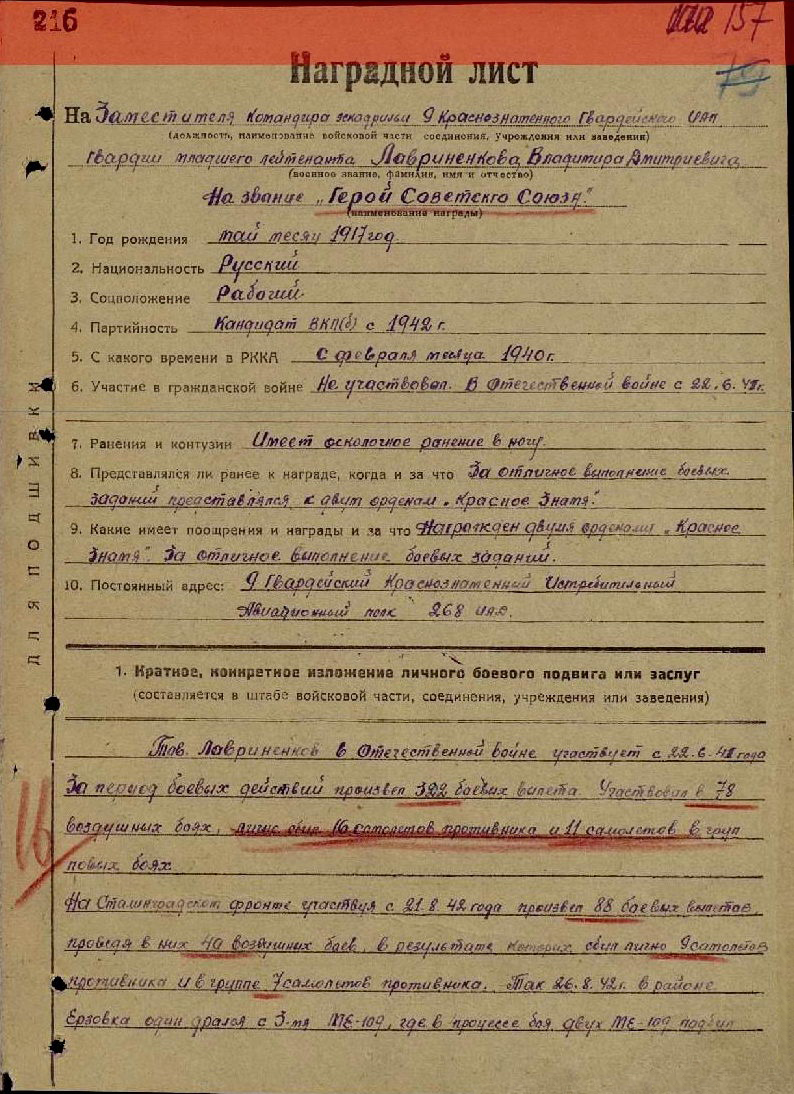 216
157
79
Наградной лист
На Заместителя Командира эскадрильи 9 Краснознаменного Гвардейского ИАП
(должность, наименование войсковой части соединения, учреждения или заведения)
Гвардии младшего лейтенанта Лавриненкова Владимира Дмитриевича
(военное звание, фамилия, имя и отчество)
На звание „Герой Советскго Союза."
(наименование награды)
1. Год рождения май месяц 1917 год.
2. Национальность Русский
3. Соцположение Рабочий
4. Партийность Кандидат ВКП(б) с 1942 г.
5. С какого времени в РККА С февраля месяца 1940 г.
6. Участие в гражданской войне Не участвовал. В Отечественной войне с 22.6.41г.
7. Ранения и контузии Имеет осколочное ранение в ногу.
8. Представлялся ли ранее к награде, когда и за что За отличное выполнение боевых
заданий представлялся к двум орденам „Красное Знамя".
9. Какие имеет поощрения и награды и за что Награжден двумя орденами „Красное
Знамя". За отличное выполнение боевых заданий.
10. Постоянный адрес: 9 Гвардейский Краснознаменный Истребительный
Авиационный полк 268 ИАД.
ДЛЯ ПОДШИВКИ
1. Краткое, конкретное изложение личного боевого подвига или заслуг
(составляется в штабе войсковой части, соединения, учреждения или заведения)
Тов. Лавриненков в Отечественной войне участвует с 22.6.41 года
За период боевых действий произвел 322 боевых вылета. Участвовал в 78
воздушных боях, лично сбил 16 самолетов противника и 11 самолетов в груп
повых боях.
16
На Сталинградском фронте участвуя с 21.8.42 года произвел 88 боевых вылетов,
проведя в них 40 воздушных боев, в результате которых сбил лично 9 самолетов
противника и в группе 7 самолетов противника. Так 26.8.42г. в районе
Ерзовка один дрался с 3-мя МЕ-109, где в процессе боя двух МЕ-109 подбил